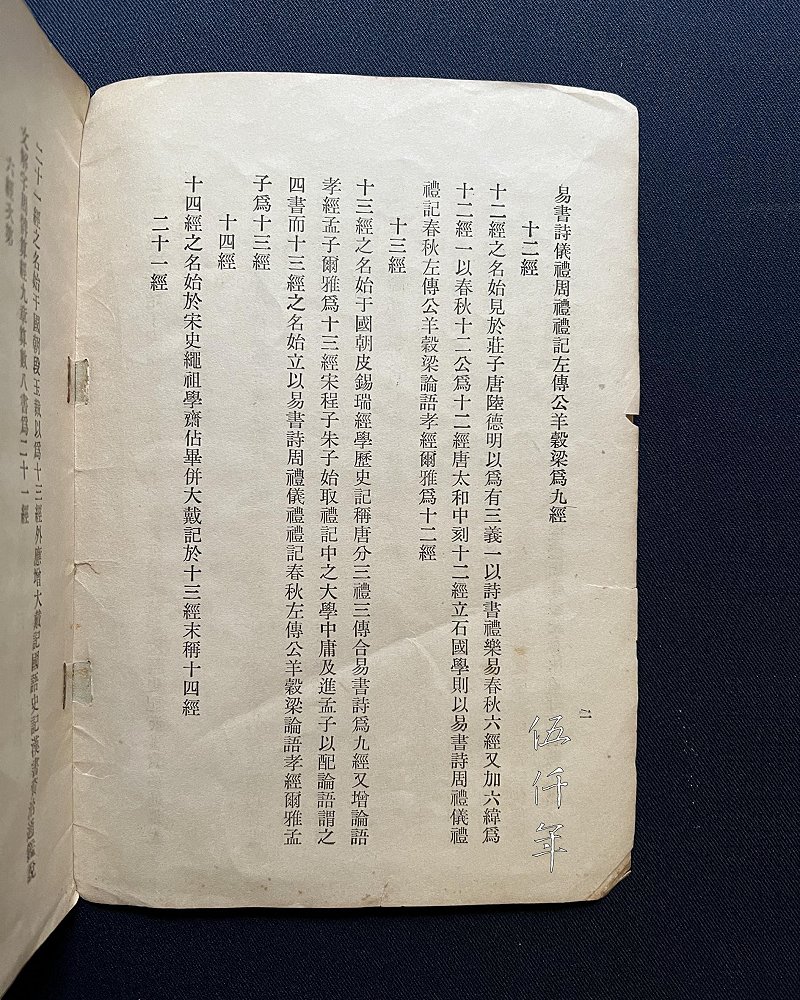 易書詩儀禮周禮禮記左傳公羊穀梁爲九經
十二經
十二經之名始見於莊子唐陸德明以爲有三義一以詩書禮樂易春秋六經又加六緯爲
十二經一以春秋十二公爲十二經唐太和中刻十二經立石國學則以易書詩周禮儀禮
禮記春秋左傳公羊穀梁論語孝經爾雅爲十二經
十三經
十三經之名始于國朝皮錫瑞經學歷史記稱唐分三禮三傳合易書詩爲九經又增論語
孝經孟子爾雅爲十三經宋程子朱子始取禮記中之大學中庸及進孟子以配論語謂之
四書而十三經之名始立以易書詩周禮儀禮禮記春秋左傳公羊穀梁論語孝經爾雅孟
子爲十三經
十四經
十四經之名始於宋史繩祖學齋佔畢併大戴記於十三經末稱十四經
二十一經
二
伍仟年
二十一經之名始于國朝段玉裁以爲十三經外應增大戴記國語史記漢書資治通鑑說
文解字周髀算經九章算數八書爲二十一經
六經次第